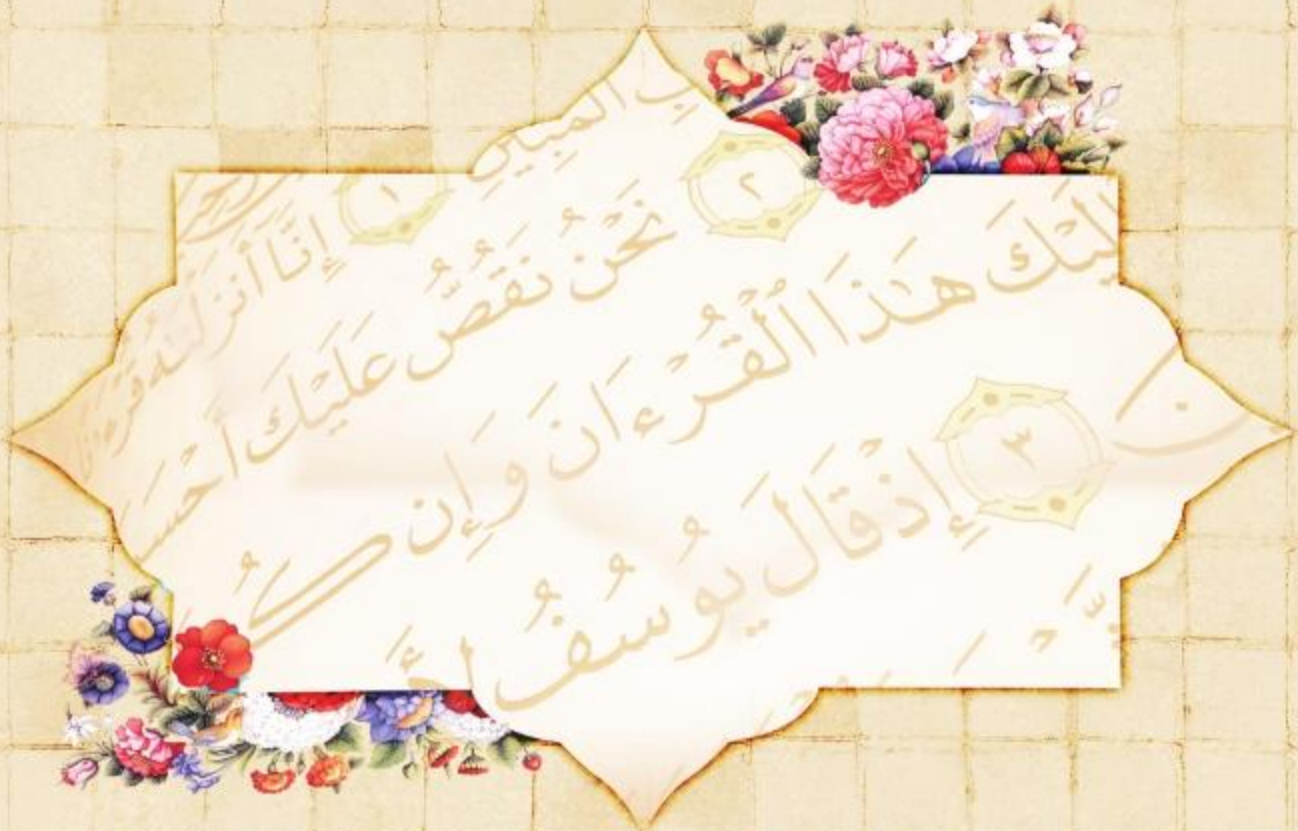 بِ الْمُبِينِ ١ إِنَّآ أَنزَلْنَٰهُ قُرْءَٰنًا
٢ نَحْنُ نَقُصُّ عَلَيْكَ أَحْسَ
لَيْكَ هَٰذَا ٱلْقُرْءَانَ وَإِن كُ
ـنَ ٣ إِذْ قَالَ يُوسُفُ